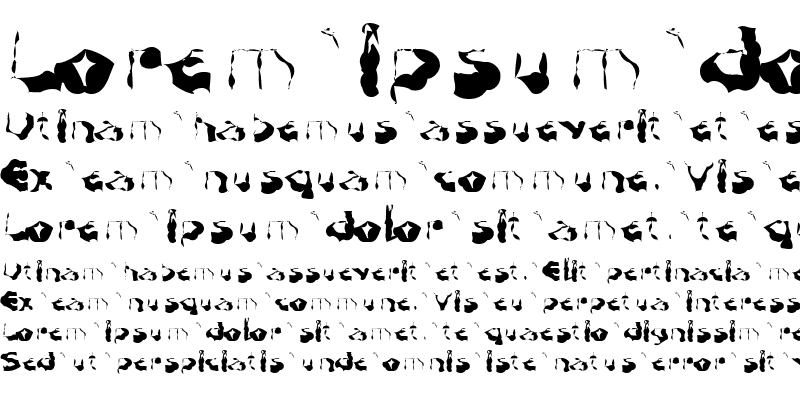 Lorem`Ipsum`do
Utinam`habemus`assueverit`et`es
Ex`eam`nusquam`commune.`Vis`e
Lorem`ipsum`dolor`sit`amet.`te`qu
Utinam`habemus`assueverit`et`est.`Elit`pertinacia`me
Ex`eam`nusquam`commune.`Vis`eu`perpetua`interess
Lorem`ipsum`dolor`sit`amet.`te`quaestio`dignissim`re
Sed`ut`perspiciatis`unde`omnis`iste`natus`error`sit`v